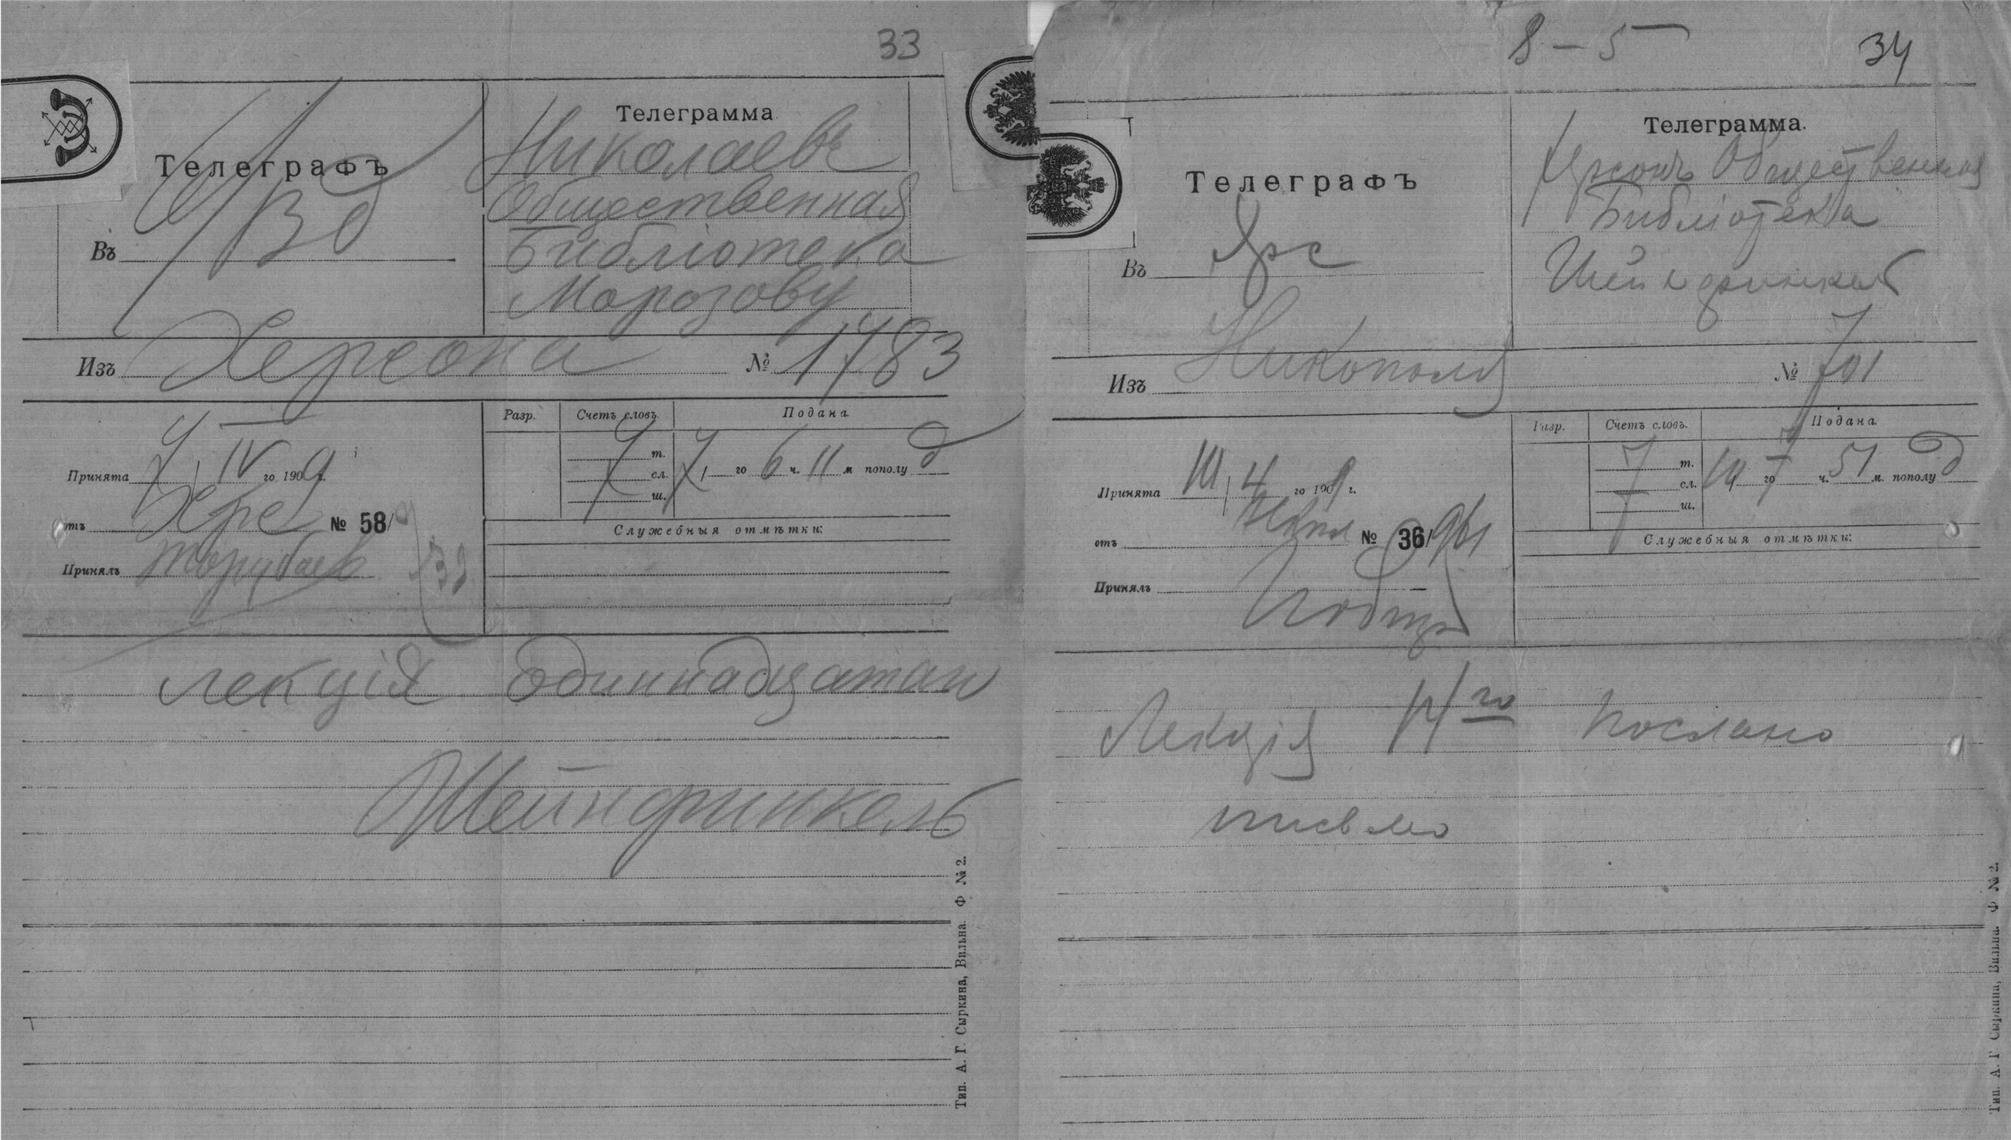 33
Телеграмма
Николаевъ
Телеграфъ
Общественная
Въ
Библіотека
Морозову
Изъ Херсона № 1783
Разр. Счетъ словъ. Подана
т.
Принята 7 IV го 1909 г. сл. 7 го 6 ч. 11 м пополу д
ш.
отъ Хрс № 58/
Служебныя отмѣтки:
Принялъ
лекція одиннадцатаго
Шейнфинкель
Тип. А. Г. Сыркина, Вильна. Ф № 2.
8 – 5
34
Телеграмма.
Херсонъ Общественная
Телеграфъ
Библіотека
Въ Хрс
Шейнфинкель
Изъ Никополя № 701
Разр. Счетъ словъ. Подана
7 т.
Принята 4 го 1909 г. сл. го 7 ч. 51 м. пополу д
7 ш.
отъ № 36/961
Служебныя отмѣтки:
Принялъ
Лекція 14го послано
письмо
Тип. А. Г. Сыркина, Вильна. Ф № 2.